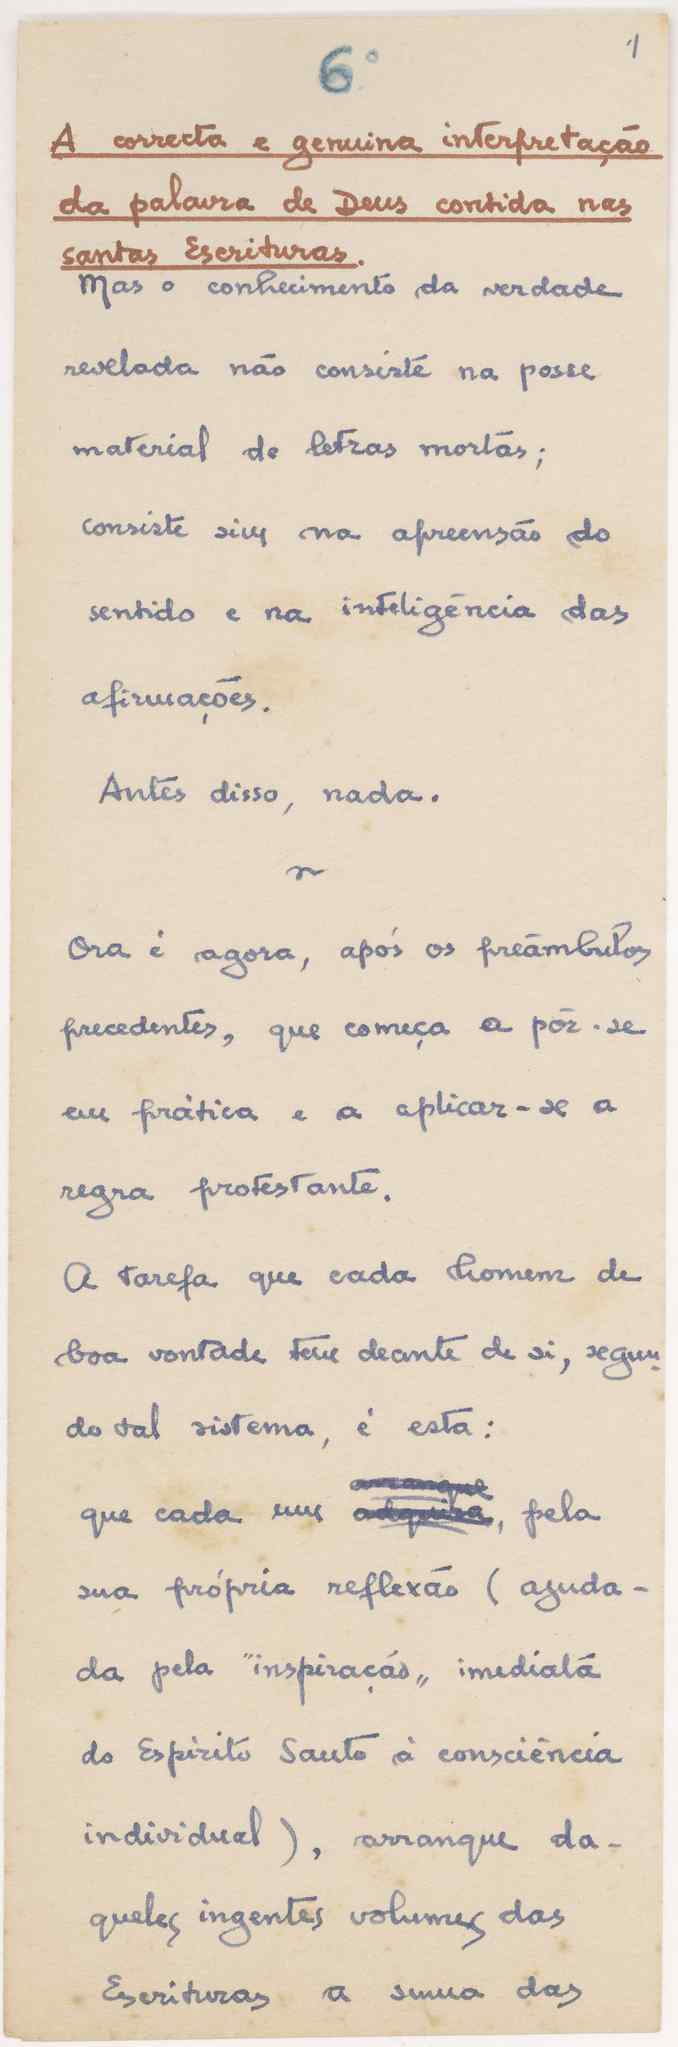 1
6º
A correcta e genuina interpretação
da palavra de Deus contida nas
santas Escrituras.
Mas o conhecimento da verdade
revelada não consiste na posse
material de letras mortas;
consiste sim na apreensão do
sentido e na inteligência das
afirmações.
Antes disso, nada.
~
Ora é agora, após os preâmbulos
precedentes, que começa a pôr-se
em prática e a aplicar-se a
regra protestante.
A tarefa que cada homem de
boa vontade tem deante de si, segun-
do tal sistema, é esta:
arranque
que cada um adquira, pela
sua própria reflexão (ajuda-
da pela "inspiração„ imediata
do Espírito Santo à consciência
individual), arranque da-
queles ingentes volumes das
Escrituras a suma das